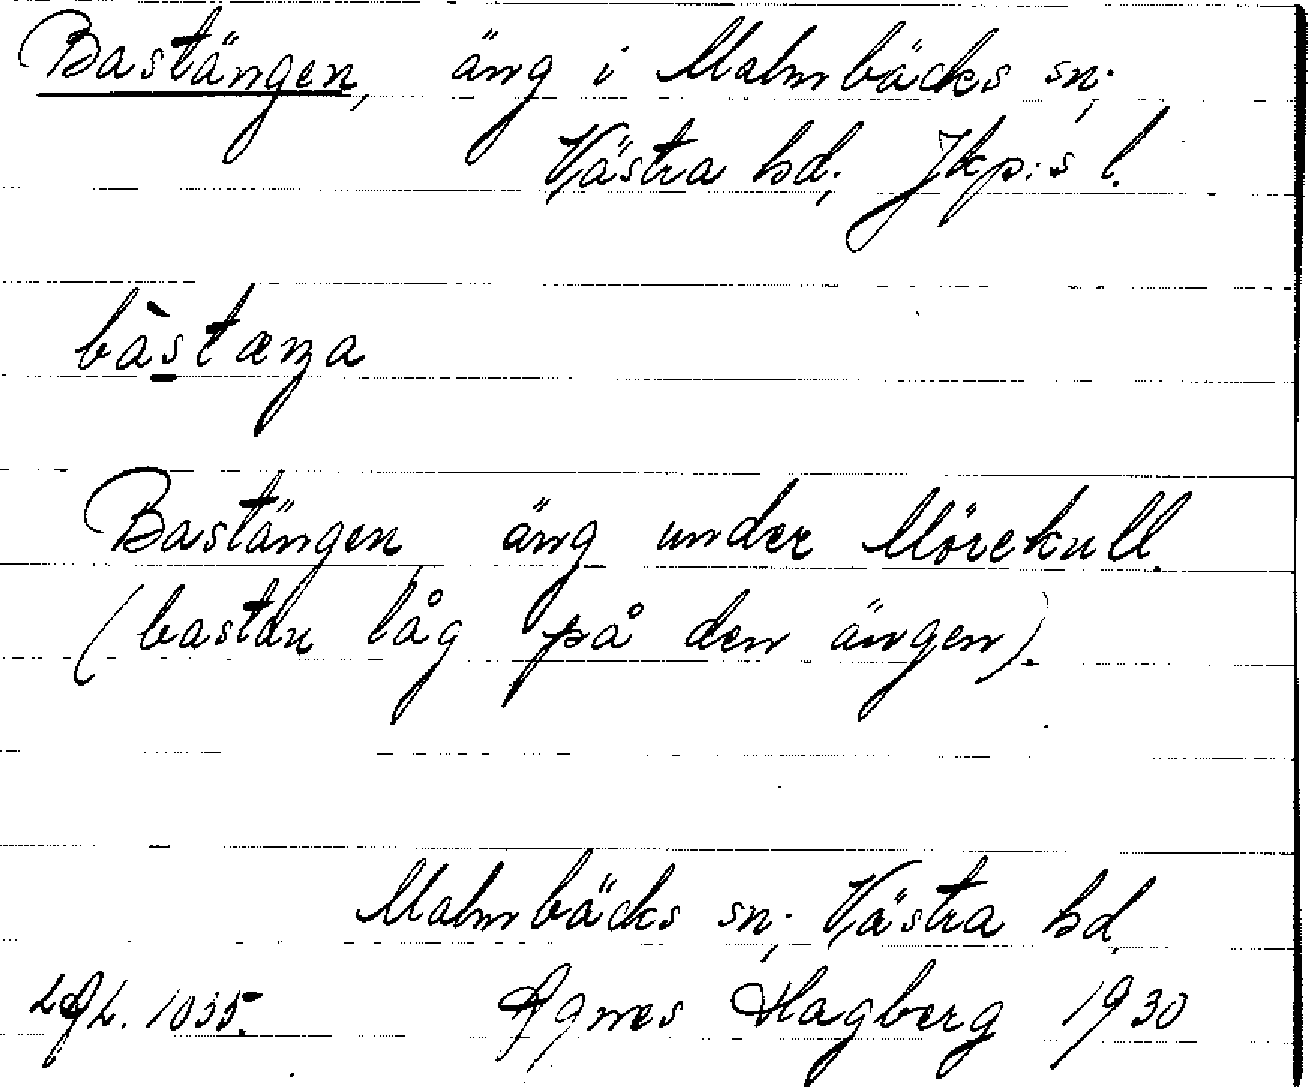 Bastängen, äng i Malmbäcks sn;
Västra hd; Jkp:s l.
bàstæŋa
Bastängen, äng under Mörekull.
(bastan låg på den ängen).
Malmbäcks sn; Västra hd,
1035. Agnes Hagberg 1930